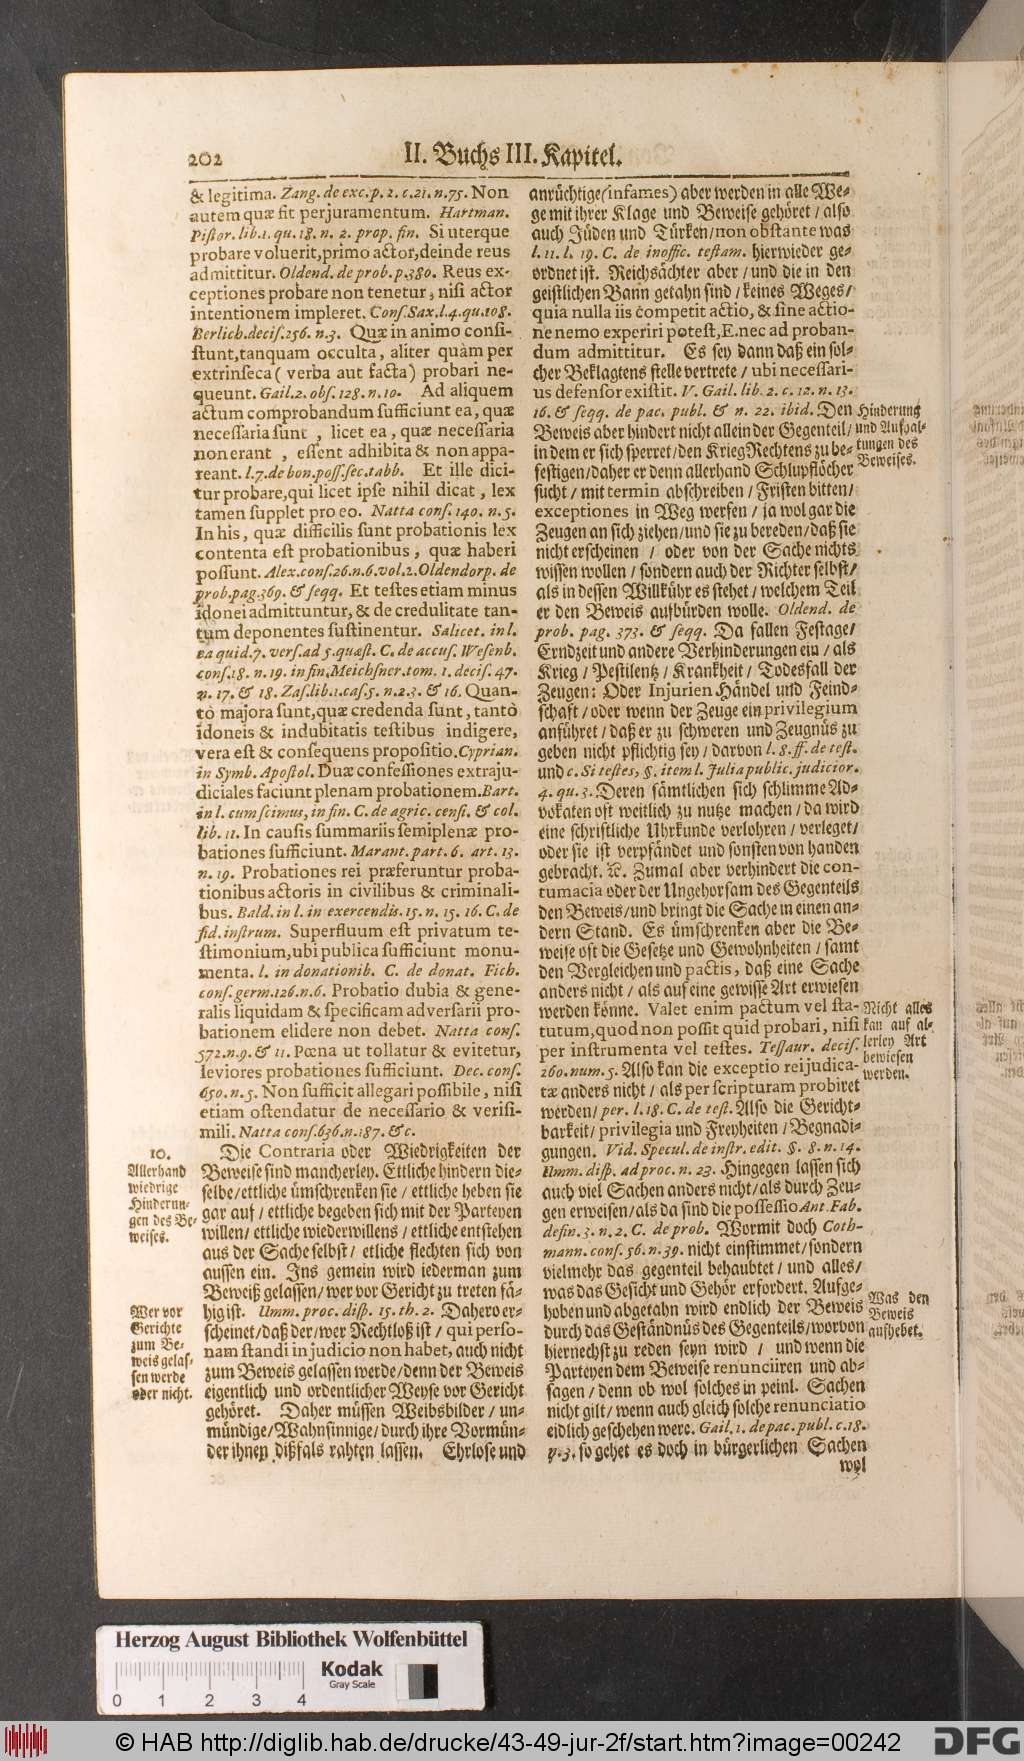 202
II. Buchs III. Kapitel.
& legitima. Zang. de exc. p. 2. c. 21. n. 75. Non
autem quæ fit per juramentum. Hartman.
Pistor. lib. 1. qu. 18. n. 2. prop. fin. Si uterque
probare voluerit, primo actor, deinde reus
admittitur. Oldend. de prob. p. 380. Reus ex-
ceptiones probare non tenetur, nisi actor
intentionem impleret. Cons. Sax. l. 4. qu. 108.
Berlich. decis. 256. n. 3. Quæ in animo consi-
stunt, tanquam occulta, aliter quàm per
extrinseca ( verba aut facta) probari ne-
queunt. Gail. 2. obs. 128. n. 10. Ad aliquem
actum comprobandum sufficiunt ea, quæ
necessaria sunt , licet ea, quæ necessaria
non erant , essent adhibita & non appa-
reant. l. 7. de bon. poss. sec. tabb. Et ille dici-
tur probare, qui licet ipse nihil dicat, lex
tamen supplet pro eo. Natta cons. 140. n. 5.
In his, quæ difficilis sunt probationis lex
contenta est probationibus, quæ haberi
possunt. Alex. cons. 26. n. 6. vol. 2. Oldendorp. de
prob. pag. 369. & seqq. Et testes etiam minus
idonei admittuntur, & de credulitate tan-
tum deponentes sustinentur. Salicet. in l.
ea quid. 7. vers. ad 5. quæst. C. de accus. Wesenb.
cons. 18. n. 19. in fin. Meichsner. tom. 1. decis. 47.
n. 17. & 18. Zas. lib. 1. cas. 5. n. 2. 3. & 16. Quan-
tò majora sunt, quæ credenda sunt, tantò
idoneis & indubitatis testibus indigere,
vera est & consequens propositio. Cyprian.
in Symb. Apostol. Duæ confessiones extraju-
diciales faciunt plenam probationem. Bart.
in l. cum scimus, in fin. C. de agric. censi. & col.
lib. 11. In causis summariis semiplenæ pro-
bationes sufficiunt. Marant. part. 6. art. 13.
n. 19. Probationes rei præferuntur proba-
tionibus actoris in civilibus & criminali-
bus. Bald. in l. in exercendis. 15. n. 15. 16. C. de
fid. instrum. Superfluum est privatum te-
stimonium, ubi publica sufficiunt monu-
menta. l. in donationib. C. de donat. Fich.
cons. germ. 126. n. 6. Probatio dubia & gene-
ralis liquidam & specificam adversarii pro-
bationem elidere non debet. Natta cons.
572. n. 9. & 11. Pœna ut tollatur & evitetur,
leviores probationes sufficiunt. Dec. cons.
650. n. 5. Non sufficit allegari possibile, nisi
etiam ostendatur de necessario & verisi-
mili. Natta cons. 636. n. 187. &c.
10.
Allerhand
wiedrige
Hinderun-
gen des Be-
weises.
Die Contraria oder Wiedrigkeiten der
Beweise sind mancherley. Ettliche hindern die-
selbe/ ettliche ümschrenken sie / ettliche heben sie
gar auf / ettliche begeben sich mit der Parteyen
willen/ ettliche wiederwillens / ettliche entstehen
aus der Sache selbst/ etliche flechten sich von
aussen ein. Ins gemein wird iederman zum
Beweiß gelassen/ wer vor Gericht zu treten fä-
hig ist. Umm. proc. disp. 15. th. 2. Dahero er-
scheinet/ daß der/ wer Rechtloß ist / qui perso-
nam standi in judicio non habet, auch nicht
zum Beweis gelassen werde/ denn der Beweis
eigentlich und ordentlicher Weyse vor Gericht
gehöret. Daher müssen Weibsbilder / un-
mündige/ Wahnsinnige/ durch ihre Vormün-
der ihnen dißfals rahten lassen. Ehrlose und
Wer vor
Gerichte
zum Be-
weis gelas-
sen werde
oder nicht.
anrüchtige (infames) aber werden in alle We-
ge mit ihrer Klage und Beweise gehöret / also
auch Jüden und Türken/ non obstante was
l. 11. l. 19. C. de inoffic. testam. hierwieder ge-
ordnet ist. Reichsächter aber / und die in den
geistlichen Bann getahn sind / keines Weges/
quia nulla iis competit actio, & sine actio-
ne nemo experiri potest, E. nec ad proban-
dum admittitur. Es sey dann daß ein sol-
cher Beklagtens stelle vertrete / ubi necessari-
us defensor existit. V. Gail. lib. 2. c. 12. n. 13.
16. & seqq. de pac. publ. & n. 22. ibid. Den
Beweis aber hindert nicht allein der Gegenteil/
in dem er sich sperret/ den Krieg Rechtens zu be-
festigen/ daher er denn allerhand Schlupflöcher
sucht / mit termin abschreiben / Fristen bitten/
exceptiones in Weg werfen / ja wol gar die
Zeugen an sich ziehen/ und sie zu bereden/ daß sie
nicht erscheinen / oder von der Sache nichts
wissen wollen / sondern auch der Richter selbst/
als in dessen Willkühr es stehet / welchem Teil
er den Beweis aufbürden wolle. Oldend. de
prob. pag. 373. & seqq. Da fallen Festage/
Erndzeit und andere Verhinderungen ein / als
Krieg / Pestilentz / Krankheit / Todesfall der
Zeugen: Oder Injurien Händel und Feind-
schaft / oder wenn der Zeuge ein privilegium
anführet / daß er zu schweren und Zeugnüs zu
geben nicht pflichtig sey / darvon l. 8. ff. de test.
und c. Si testes, §. item l. Julia public. judicior.
4. qu. 3. Deren sämtlichen sich schlimme Ad-
vokaten oft weitlich zu nutze machen / da wird
eine schriftliche Uhrkunde verlohren / verleget/
oder sie ist verpfändet und sonsten von handen
gebracht. ꝛc. Zumal aber verhindert die con-
tumacia oder der Ungehorsam des Gegenteils
den Beweis/ und bringt die Sache in einen an-
dern Stand. Es ümschrenken aber die Be-
weise oft die Gesetze und Gewohnheiten / samt
den Vergleichen und pactis, daß eine Sache
anders nicht / als auf eine gewisse Art erwiesen
werden könne. Valet enim pactum vel sta-
tutum, quod non possit quid probari, nisi
per instrumenta vel testes. Tessaur. decis.
260. num. 5. Also kan die exceptio rei judica-
tæ anders nicht / als per scripturam probiret
werden/ per. l. 18. C. de test. Also die Gericht-
barkeit/ privilegia und Freyheiten / Begnadi-
gungen. Vid. Specul. de instr. edit. §. 8. n. 14.
Umm. disp. ad proc. n. 23. Hingegen lassen sich
auch viel Sachen anders nicht/ als durch Zeu-
gen erweisen/ als da sind die possessio Ant. Fab.
defin. 3. n. 2. C. de prob. Wormit doch Coth-
mann. cons. 56. n. 39. nicht einstimmet/ sondern
vielmehr das gegenteil behaubtet / und alles/
was das Gesicht und Gehör erfordert. Aufge-
hoben und abgetahn wird endlich der Beweis
durch das Geständnüs des Gegenteils/ worvon
hiernechst zu reden seyn wird / und wenn die
Parteyen dem Beweise renunciiren und ab-
sagen / denn ob wol solches in peinl. Sachen
nicht gilt / wenn auch gleich solche renunciatio
eidlich geschehen were. Gail. 1. de pac. publ. c. 18.
p. 3. so gehet es doch in bürgerlichen Sachen
wol
Hinderung
und Aufhal-
tungen des
Beweises.
Nicht alles
kan auf al-
lerley Art
bewiesen
werden.
Was den
Beweis
aufhebet.
Herzog August Bibliothek Wolfenbüttel
Kodak
Gray Scale
0 1 2 3 4
© HAB http://diglib.hab.de/drucke/43-49-jur-2f/start.htm?image=00242
DFG